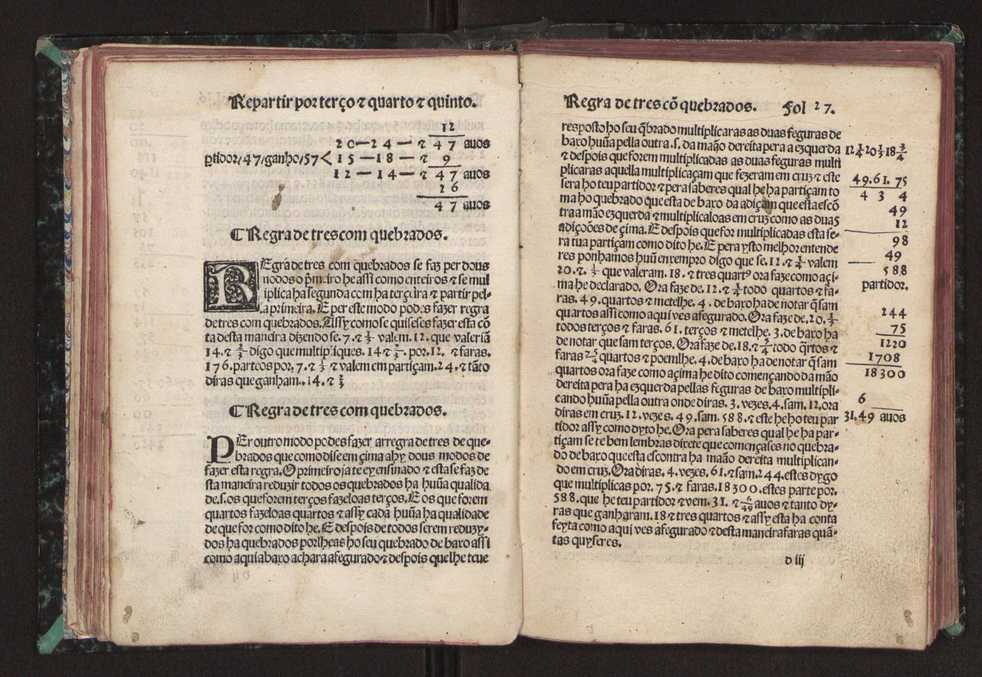 Repartir por terço ⁊ quarto ⁊ quinto.
12
20—24—⁊ 47 auos
ptidor/47/ganho/57< 15—18—⁊ 9
12—14—⁊ 47 auos
26
47 auos
¶ Regra de tres com quebrados.
REgra de tres com quebrados se faz per dous
modos o pͥmeiro he assi como enteiros ⁊ se mul
iplica ha segunda com ha terçeira ⁊ partir pel-
a primeira. E per este modo podes fazer regra
de tres com quebrados. Assy como se quiseses fazer esta cō
ta desta maneira dizendo se. 7. ⁊ ½ valem. 12. que valeriā
14. ⁊ ⅔ digo que multipriques. 14 ⁊ ⅔. por. 12. ⁊ faras.
176. parteos por. 7. ⁊ ⅓ ⁊ valem em partiçam. 24. ⁊ tāto
diras que ganham. 14. ⁊ ⅔
¶ Regra de tres com quebrados.
PEr outro modo podes fazer a rregra de tres de que-
brados que como dise em çima ahy dous modos de
fazer esta regra. O primeiro ja te ey ensinado ⁊ esta se faz de
sta maneira reduzir todos os quebrados ha hūa qualida
de .s. os que forem terços fazelos as terços. E os que forem
quartos fazelos as quartos ⁊ assy cada hūa ha qualidade
de que for como dito he. E despois de todos serem reduzy-
dos ha quebrados porlheas ho seu quebrado de baxo assi
como aqui abaxo achara asegurado ⁊ despois que lhe teue
Regra de tres cō quebrados. Fol 27.
resposto ho seu q̄brado multiplicaras as duas feguras de
baxo hūa pella outra .s. da māo dereita pera a ezquerda
⁊ despois que forem multiplicadas as duas feguras multi
plicaras aquella multiplicaçam que fezeram em cruz ⁊ este
sera ho teu partidor ⁊ pera saberes qual he ha partiçam to
ma ho quebrado que esta de baxo da adiçam que esta escō
tra a māo ezquerda ⁊ multiplicaloas em cruz como as duas
adições de çima. E despois que for multiplicadas esta se-
ra tua partiçam como dito he. E pera ysto melhor entende
res ponhamos huū enxempro digo que se. 12. ⁊ ¼ valem
20. ⁊. ⅓ que valeram. 18. ⁊ tres quartͦs ora faze como açi-
ma he declarado. Ora faze de. 12. ⁊ ¼ todo quartos ⁊ fa-
ras. 49. quartos ⁊ metelhe. 4. de baxo ha de notar q̄ sam
quartos assi como aqui ves afegurado. Ora faze de. 20. ⅓
todos terços ⁊ faras. 61. terços ⁊ metelhe. 3. de baxo ha
de notar que sam terços. Ora faze de. 18. ⁊ ¾ todo q̄rtos ⁊
faras 75/4 quartos ⁊ poemlhe. 4. de baxo ha denotar q̄ sam
quartos ora faze como açima he dito començando da māo
dereita pera ha ezquerda pellas feguras de baxo multipli-
cando hūa pella outra onde diras. 3. vezes. 4. sam. 12. ora
diras em cruz. 12. vezes. 49. sam. 588. ⁊ este he ho teu par
tidor assy como dyto he. Ora pera saberes qual he ha par-
tiçam se te bem lembras direte que começases no quebra-
do de baxo que esta escontra ha māo dereita multiplican-
do em cruz. Ora diras. 4. vezes. 61. ⁊ sam. 244. estes dygo
que multiplicas por. 75. ⁊ faras. 18300. estes parte por.
588. que he teu partidor ⁊ vem. 31. ⁊ 6/49 auos ⁊ tanto dy-
ras que ganharam. 18 ⁊ tres quartos ⁊ assy esta ha conta
feyta como aqui ves afegurado ⁊ desta maneira faras quā-
tas quyseres.
d iij
12¼ 20⅓ 18¾
49. 61. 75
4 3 4
49
12
98
49
588
partidor.
244
75
1220
1708
18300
6
31. 49 auos